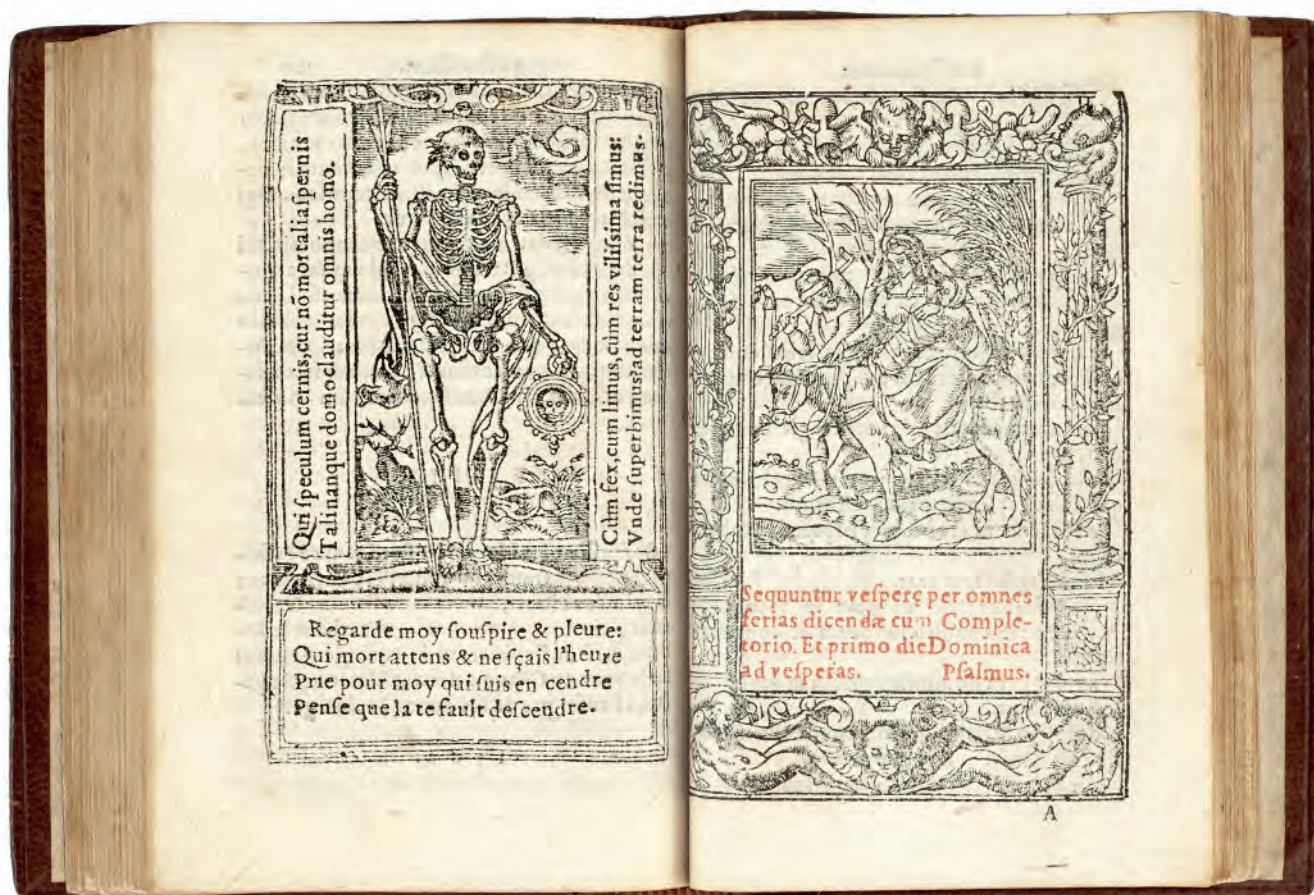 Qui ſpeculum cernis,cur nõ mortalia ſpernis
Talinanque domo clauditur omnis homo.
Cdm fex,cum limus,cùm res viliſsima ſimus:
Vnde ſuperbimus?ad terram terra redimus.
Regarde moy ſouſpire & pleure:
Qui mort attens & ne ſçais l'heure
Prie pour moy qui ſuis en cendre
Penſe que la te fault deſcendre.
Sequuntur veſperę per omnes
ferias dicendæ cum Comple-
torio. Et primo die Dominica
ad veſperas. Pſalmus.
A